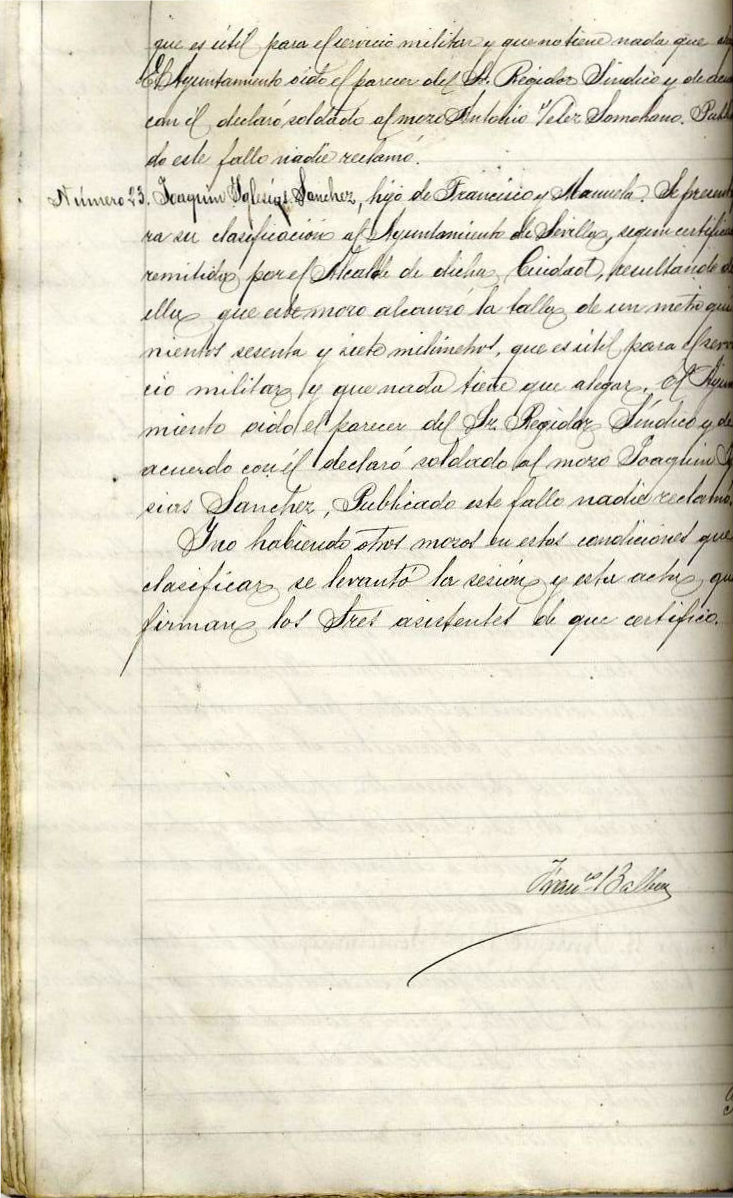 que es útil para el servicio militar y que no tiene nada que
El Ayuntamiento oido el parecer del Sr. Regidor Síndico y de acu
con él declaró soldado al mozo Antonio Velez Somohano. Publ
do este fallo nadie reclamó.
Número 23. Joaquín Iglesias Sanchez, hijo de Francisco y Manuela. Se present
ra su clasificación al Ayuntamiento de Sevilla, segun certific
remitido por el Alcalde de dicha Ciudad, resultando de
ella que este mozo alcanzó la talla de un metro qui
nientos sesenta y siete milímetros, que es útil para el servi
cio militar y que nada tiene que alegar. El Ayun
miento oido el parecer del Sr. Regidor Síndico y de
acuerdo con él declaró soldado al mozo Joaquin Ig
sias Sanchez, Publicado este fallo nadie reclamó.
Y no habiendo otros mozos en estas condiciones que
clasificar se levantó la sesión y esta acta, que
firman los Sres asistentes de que certifico.
Franco Balbu